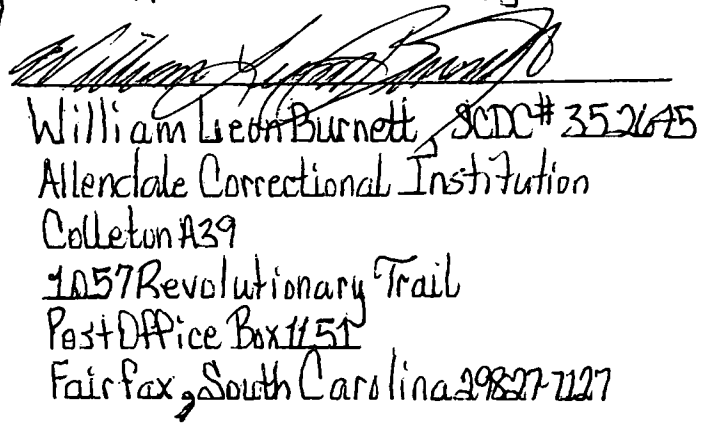 William Leon Burnett
William Leon Burnett SCDC# 352645
Allendale Correctional Institution
Colleton A39
1057 Revolutionary Trail
Post Office Box 1151
Fairfax, South Carolina 29827-7127